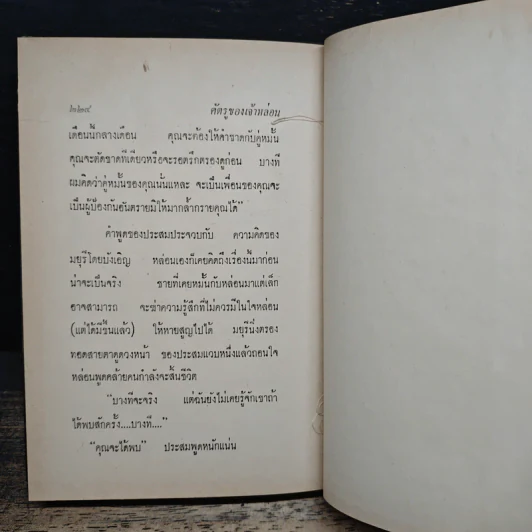 ศัตรูของเจ้าหล่อน
เดือนนี้กลางเดือน คุณจะต้องให้คำขาดกับคู่หมั้น
คุณจะตัดขาดทีเดียวหรือจะรอตรึกตรองดูก่อน บางที
ผมคิดว่าคู่หมั้นของคุณนั่นแหละ จะเป็นเพื่อนของคุณจะ
เป็นผู้ป้องกันอันตรายมิให้มากล้ำกรายคุณได้"
คำพูดของประสมประจวบกับ ความคิดของ
มยุรีโดยบังเอิญ หล่อนเองก็เคยคิดถึงเรื่องนี้มาก่อน
น่าจะเป็นจริง ชายที่เคยหมั้นกับหล่อนมาแต่เล็ก
อาจสามารถ จะฆ่าความรู้สึกที่ไม่ควรมีในใจหล่อน
(แต่ได้มีขึ้นแล้ว) ให้หายสูญไปได้ มยุรีนิ่งตรอง
ทอดสายตาดูดวงหน้า ของประสมแวบหนึ่งแล้วถอนใจ
หล่อนพูดคล้ายคนกำลังจะสิ้นชีวิต
"บางทีจะจริง แต่ฉันยังไม่เคยรู้จักเขาถ้า
ได้พบสักครั้ง....บางที...."
"คุณจะได้พบ" ประสมพูดหนักแน่น